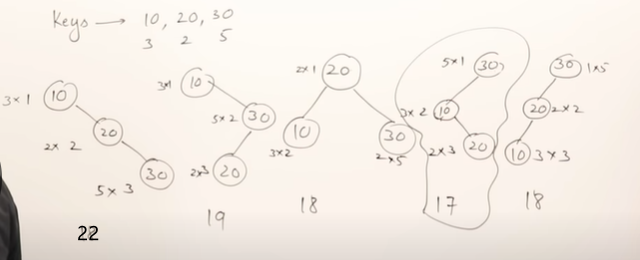 Keys → 10, 20, 30
3 2 5
3×1 10
2×2 20
5×3 30
22
3×1 10
5×2 30
2×3 20
19
2×1 20
10 3×2
30 2×5
18
5×1 30
3×2 10
2×3 20
17
30 1×5
20 2×2
10 3×3
18